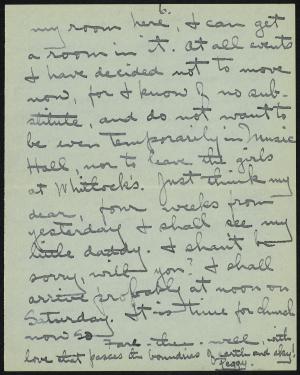 6.
my room here, I can get
a room in it. At all events
I have decided not to move
now, for I know of no sub-
stitute, and do not want to
be even temporarily in Music
Hall, nor to leave the girls
at Whitlock's. Just think my
dear, four weeks from
yesterday I shall see my
little daddy. I shan't be
sorry, will you? I shall
arrive probably at noon on
Saturday. It is time for church
now so
Fare - thee - well, with
love that passes the boundries of earth and sky,
Peggy.